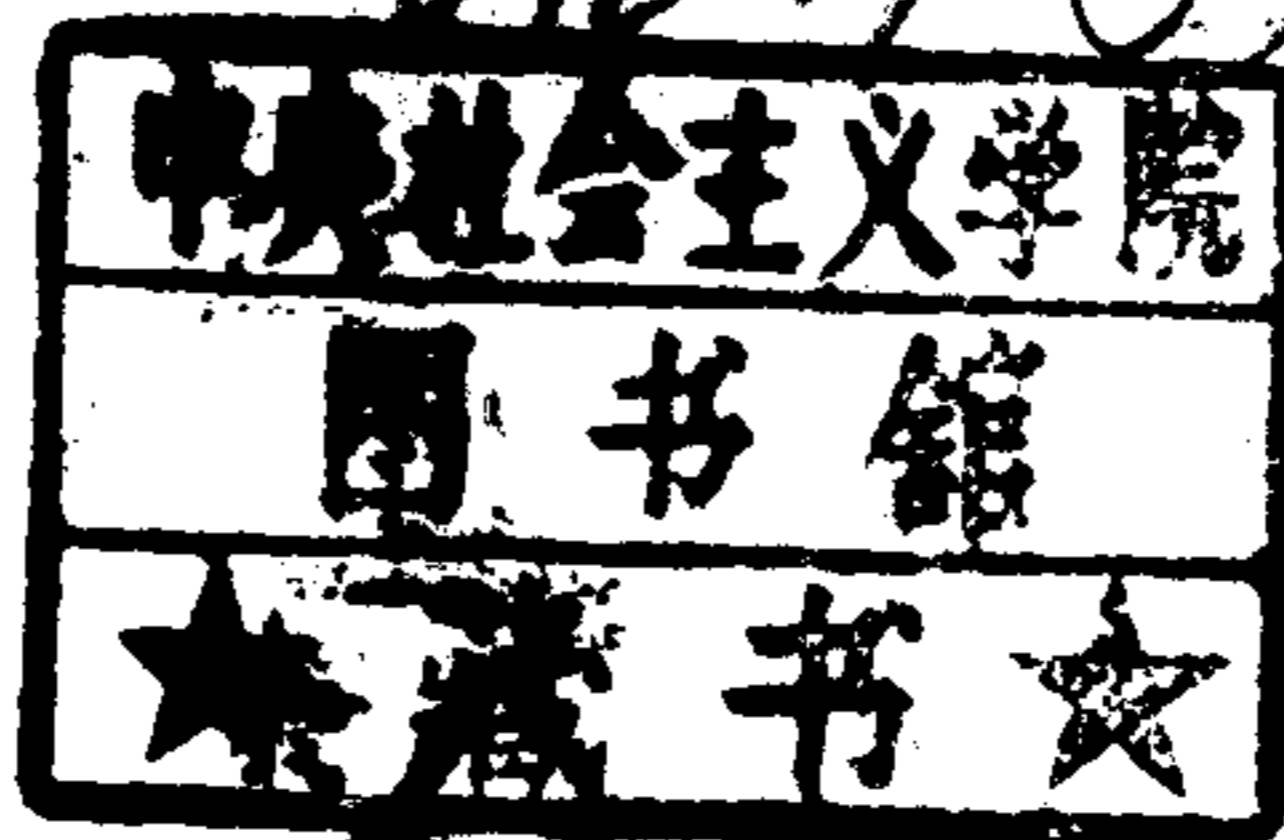 中央社会主义学院
图书馆
★藏书☆